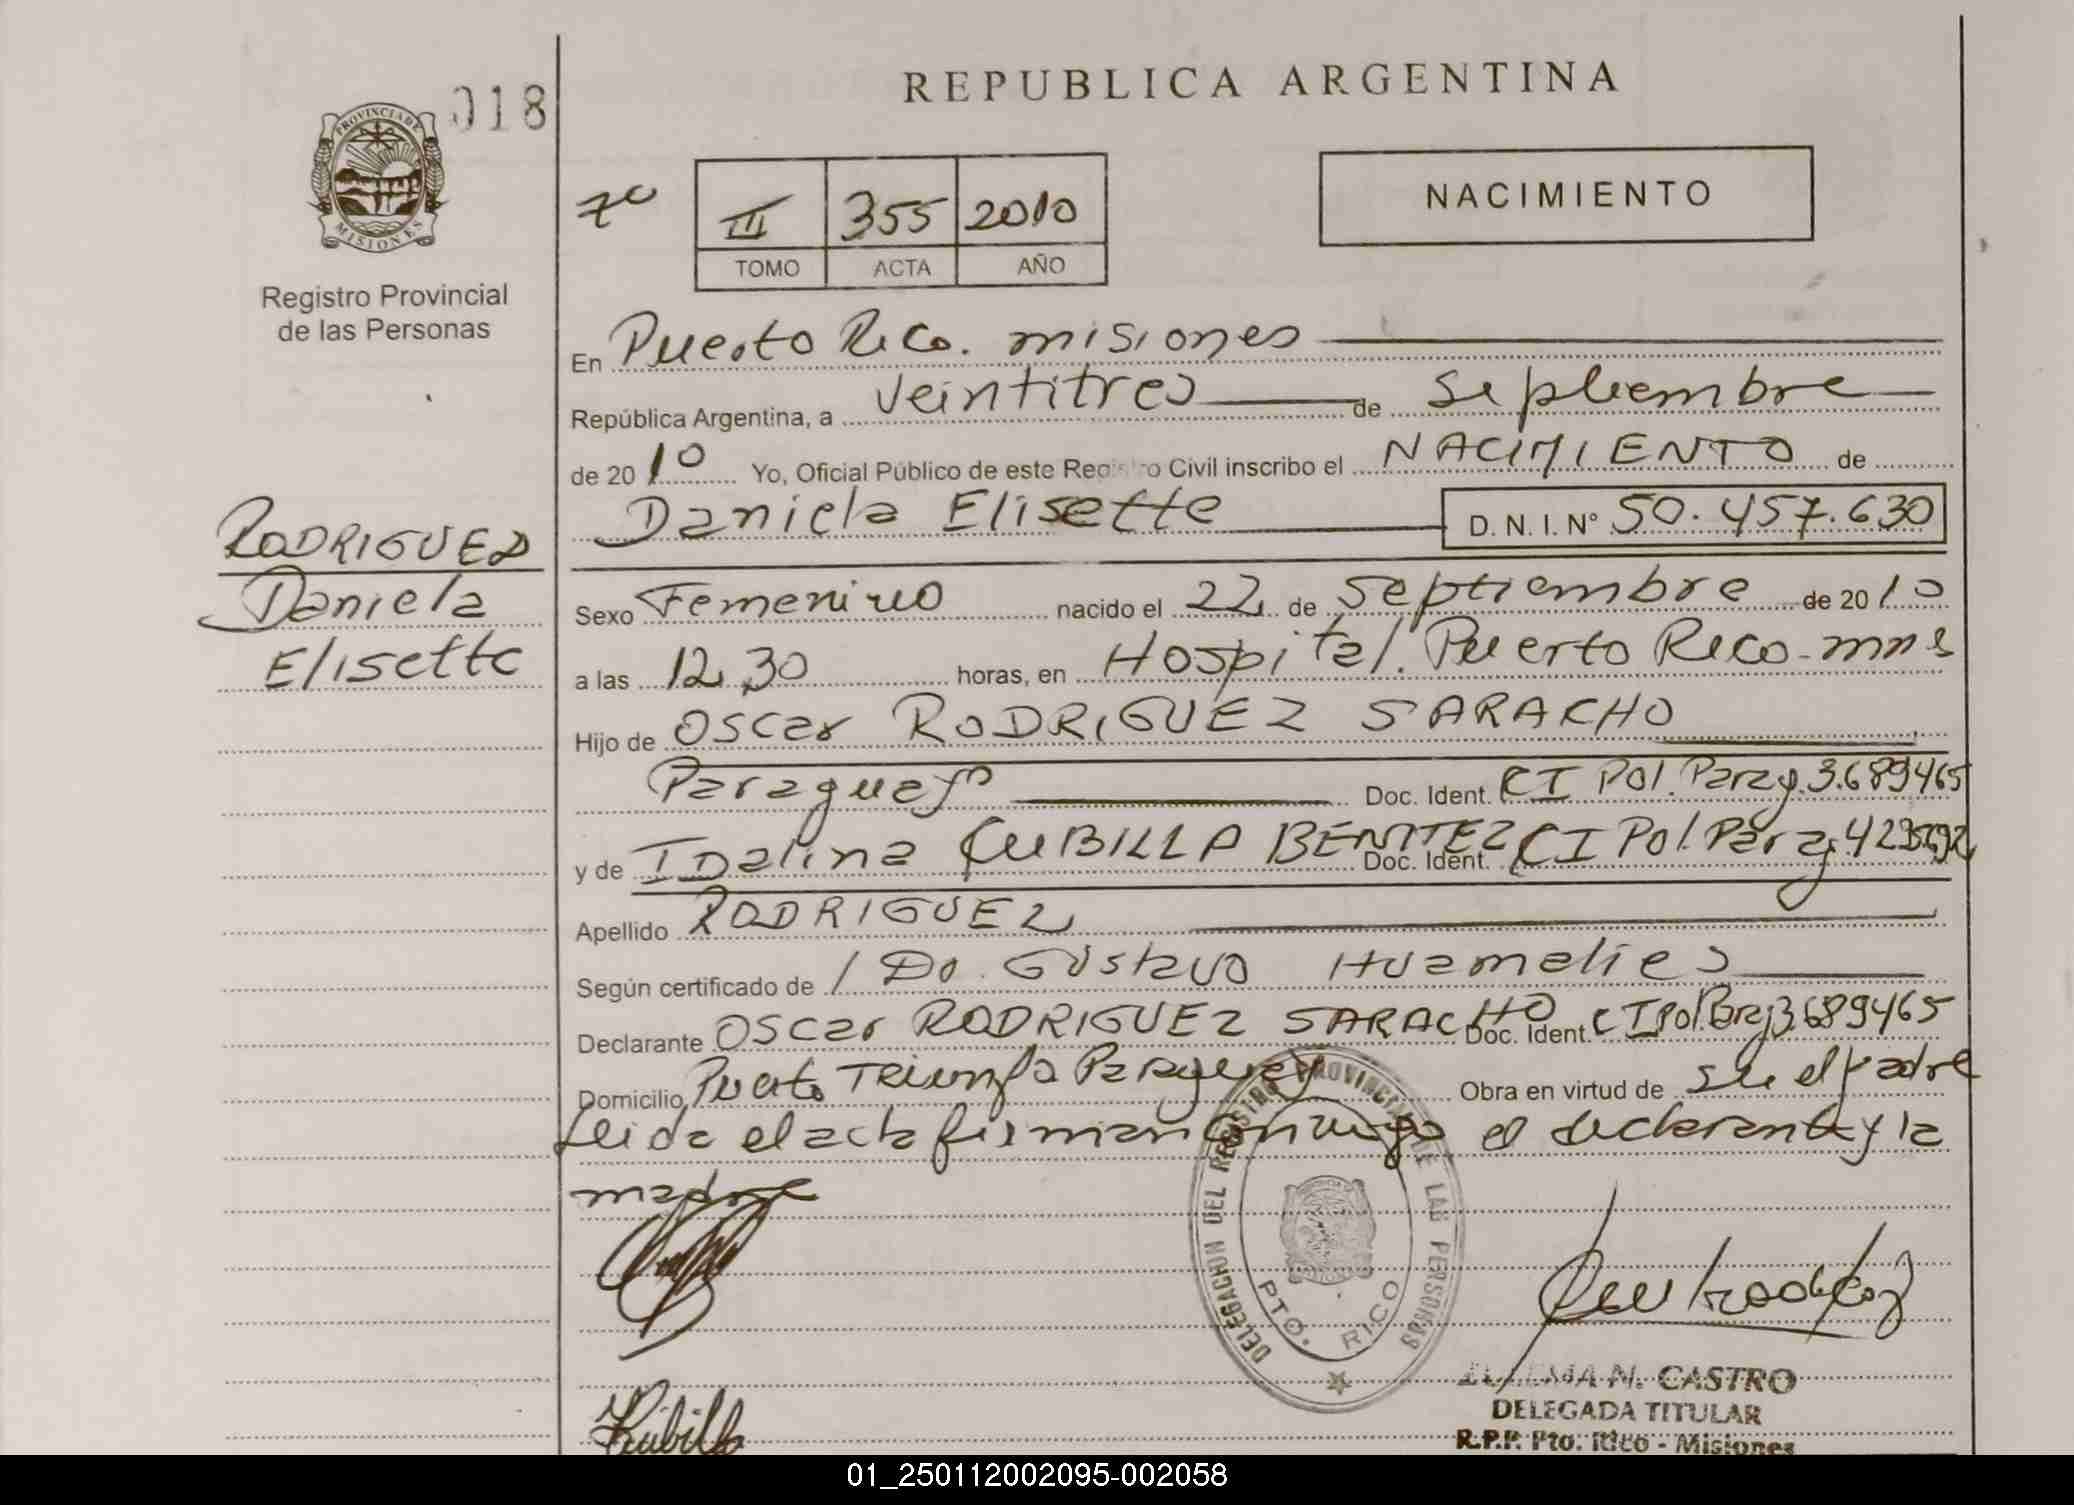 REPUBLICA ARGENTINA
018
PROVINCIA DE MISIONES
Registro Provincial
de las Personas
III 355 2010
TOMO ACTA AÑO
NACIMIENTO
En Puerto Rico. misiones
República Argentina, a veintitres de septiembre
de 2010 Yo, Oficial Público de este Registro Civil inscribo el NACIMIENTO de
Daniela Elisette D. N. I. N° 50.457.630
RODRIGUEZ
Daniela
Elisette
Sexo Femenino nacido el 22 de Septiembre de 2010
a las 12,30 horas, en Hospital. Puerto Rico-mnes
Hijo de Oscar RODRIGUEZ SARACHO
Paraguayo Doc. Ident. CI Pol. Paray. 3.689465
y de IDalina CUBILLA BENITEZ Doc. Ident. CI Pol. Paray
Apellido RODRIGUEZ
Según certificado de Gustavo Huamalies
Declarante Oscar RODRIGUEZ SARACHO Doc. Ident. CI Pol. Paray 3.689465
Domicilio Puerto Triunfo Paraguay Obra en virtud de su el padre
Leida el acta firman conmigo el declarante y la
madre
DELEGACION DEL REGISTRO PROVINCIAL DE LAS PERSONAS
PTO. RICO
N. CASTRO
DELEGADA TITULAR
R.P.P. Pto. Rico - Misiones
01_250112002095-002058